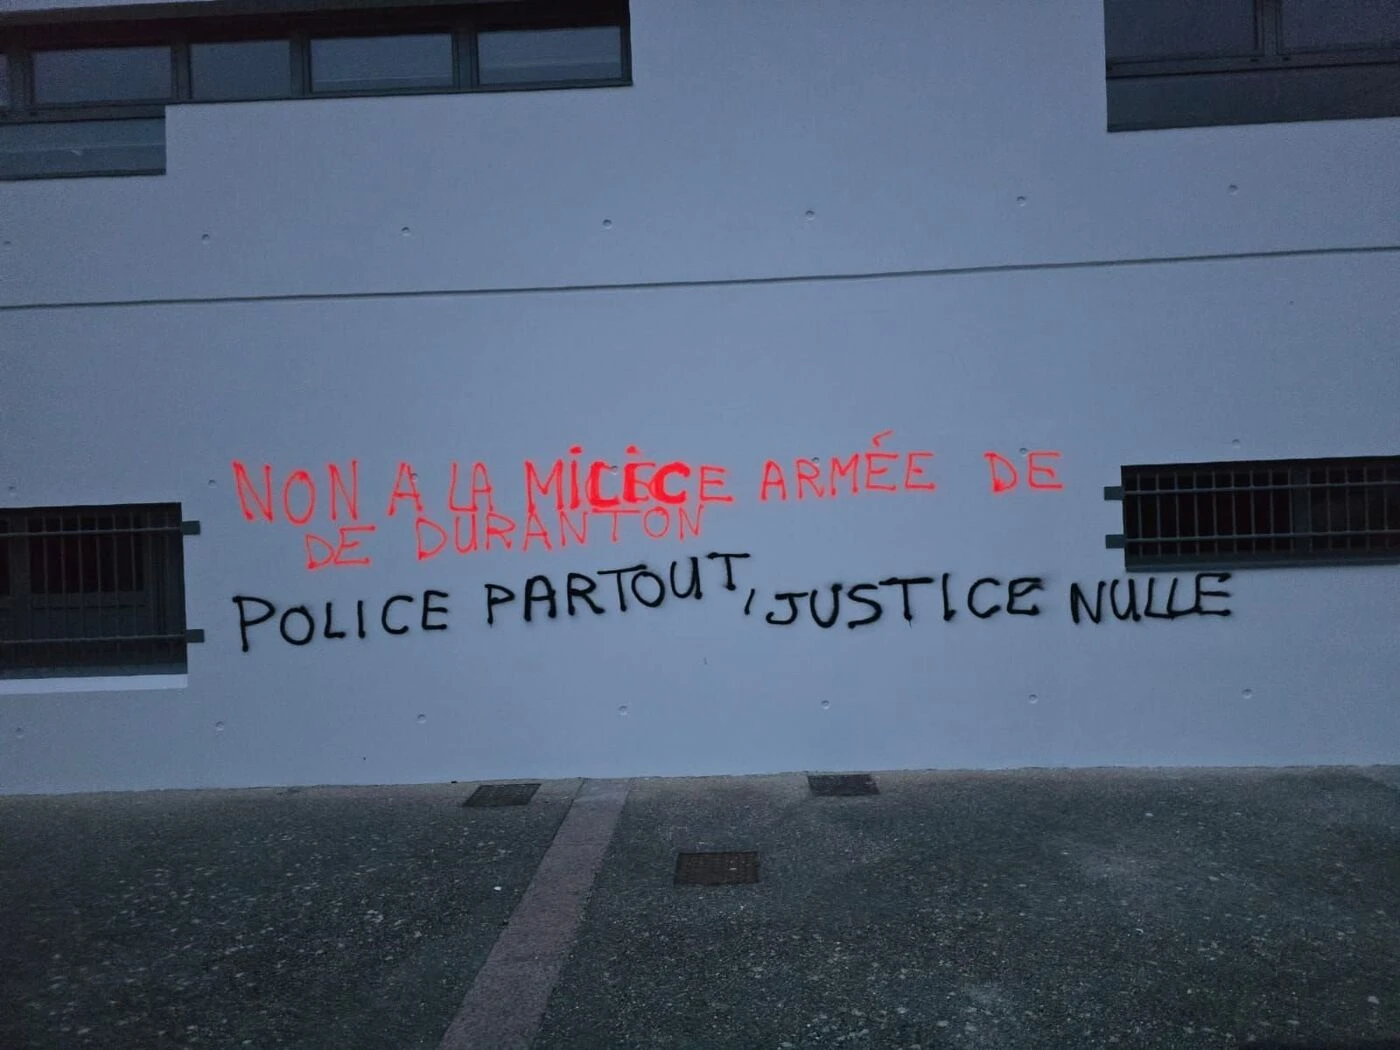 NON A LA MILICE ARMÉE DE
DE DURANTON
POLICE PARTOUT, JUSTICE NULLE